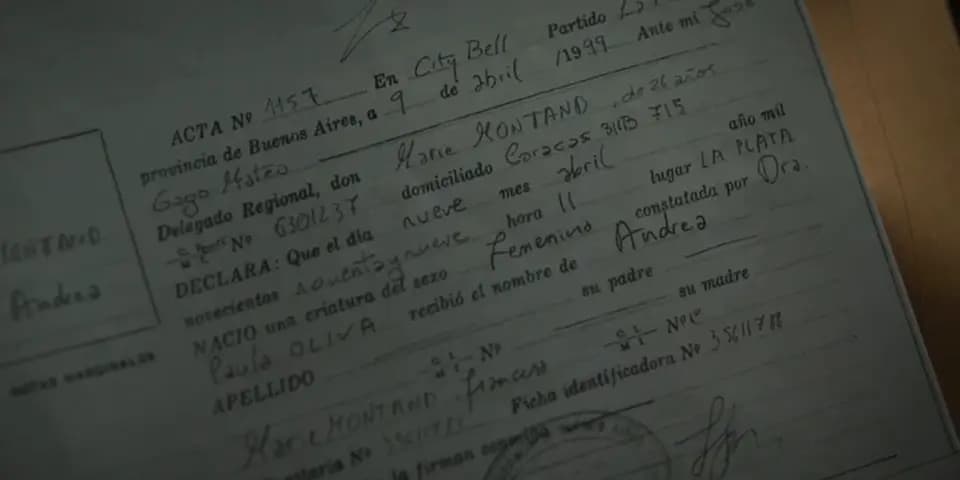 ACTA Nº 1157 En City Bell Partido
provincia de Buenos Aires, a 9 de abril /1999 Ante mí
Gogo Mateo
Delegado Regional, don Marie MONTAND, de 26 años
Nº 6301237 domiciliado Caracas 3113 715
DECLARA: Que el día nueve mes abril año mil
novecientos noventaynueve hora 11 lugar LA PLATA
NACIO una criatura del sexo femenino constatada por Dra.
Paula OLIVA recibió el nombre de Andrea
APELLIDO su padre
Nº su madre
Marie MONTAND, francesa Nº
Nº Ficha identificadora Nº
la firman
MONTAND
Andrea
NOTAS MARGINALES